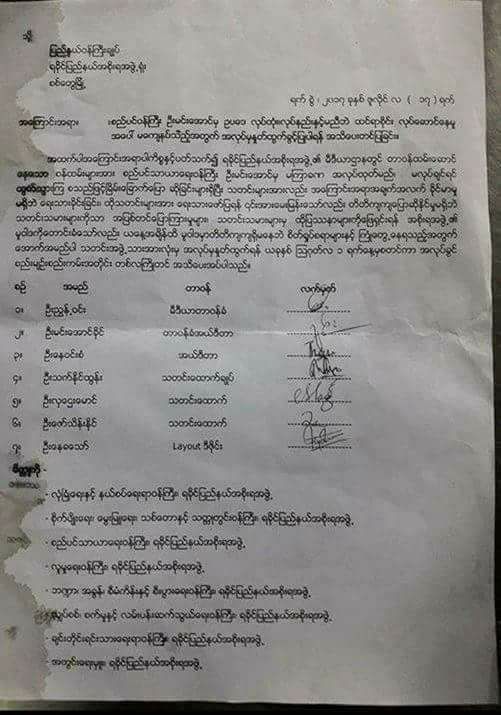 သို့
ပြည်နယ်ဝန်ကြီးချုပ်
ရခိုင်ပြည်နယ်အစိုးရအဖွဲ့ရုံး
စစ်တွေမြို့
ရက်စွဲ ၊ ၂၀၁၇ ခုနှစ် ဇူလိုင် လ ( ၁၇ ) ရက်
အကြောင်းအရာ ။ စည်ပင်ဝန်ကြီး ဦးမင်းအောင်မှ ဥပဒေ လုပ်ထုံးလုပ်နည်းနှင့်မညီဘဲ ဆင်ရာစိုင်း လုပ်ဆောင်နေမှု
အပေါ် မကျေနပ်သည့်အတွက် အလုပ်မှနှုတ်ထွက်ခွင့်ပြုပါရန် အသိပေးတင်ပြခြင်း။
အထက်ပါအကြောင်းအရာပါကိစ္စနှင့်ပတ်သက်၍ ရခိုင်ပြည်နယ်အစိုးရအဖွဲ့၏ မီဒီယာဌာနတွင် တာဝန်ထမ်းဆောင်
နေသော ဝန်ထမ်းများအား စည်ပင်သာယာရေးဝန်ကြီး ဦးမင်းအောင်မှ မကြာခဏ အလုပ်ထုတ်မည်၊ မလုပ်ချင်ရင်
ထွက်သွားကြ စသည်ဖြင့်ခြိမ်းခြောက်ပြော ဆိုခြင်းများရှိပြီး သတင်းများအားလည်း အကြောင်းအရာအချက်အလက် ခိုင်မာမှု
မရှိဘဲ ရေးသားခိုင်းခြင်း၊ ထိုသတင်းများအား ရေးသားဖော်ပြရန် ၎င်းအားမေးမြန်းသော်လည်း တိတိကျကျပြောဆိုနိုင်မှုမရှိဘဲ
အောက်အမည်ပါ သတင်းအဖွဲ့သားအားလုံးမှ အလုပ်မှနှုတ်ထွက်ရန် ယခုနှစ် ဩဂုတ်လ ၁ ရက်နေ့မှစတင်ကာ အလုပ်ခွင်
စည်းမျဉ်းစည်းကမ်းအတိုင်း တစ်လကြိုတင် အသိပေးအပ်ပါသည်။
စဉ် အမည် တာဝန် လက်မှတ်
၁။ ဦးညွန့်ဝင်း မီဒီယာတာဝန်ခံ
၂။ ဦးမင်းအောင်ခိုင် တာဝန်ခံအယ်ဒီတာ
၃။ ဦးနေဝင်းစံ အယ်ဒီတာ
၄။ ဦးသက်နိုင်ထွန်း သတင်းထောက်ချုပ်
၅။ ဦးလှဌေးမောင် သတင်းထောက်
၆။ ဦးဇော်သိန်းနိုင် သတင်းထောက်
၇။ ဦးနေခသော် Layout ဒီဇိုင်း
မိတ္တူကို -
- လုံခြုံရေးနှင့် နယ်စပ်ရေးရာဝန်ကြီး၊ ရခိုင်ပြည်နယ်အစိုးရအဖွဲ့
- စိုက်ပျိုးရေး၊ မွေးမြူရေး၊ သစ်တောနှင့် သတ္တုတွင်းဝန်ကြီး၊ ရခိုင်ပြည်နယ်အစိုးရအဖွဲ့
- စည်ပင်သာယာရေးဝန်ကြီး၊ ရခိုင်ပြည်နယ်အစိုးရအဖွဲ့
- လူမှုရေးဝန်ကြီး၊ ရခိုင်ပြည်နယ်အစိုးရအဖွဲ့
- ဘဏ္ဍာ၊ အခွန်၊ စီမံကိန်းနှင့် စီးပွားရေးဝန်ကြီး၊ ရခိုင်ပြည်နယ်အစိုးရအဖွဲ့
- လျှပ်စစ်၊ စက်မှုနှင့် လမ်းပန်းဆက်သွယ်ရေးဝန်ကြီး၊ ရခိုင်ပြည်နယ်အစိုးရအဖွဲ့
- ချင်းတိုင်းရင်းသားရေးရာဝန်ကြီး၊ ရခိုင်ပြည်နယ်အစိုးရအဖွဲ့
- အတွင်းရေးမှူး၊ ရခိုင်ပြည်နယ်အစိုးရအဖွဲ့